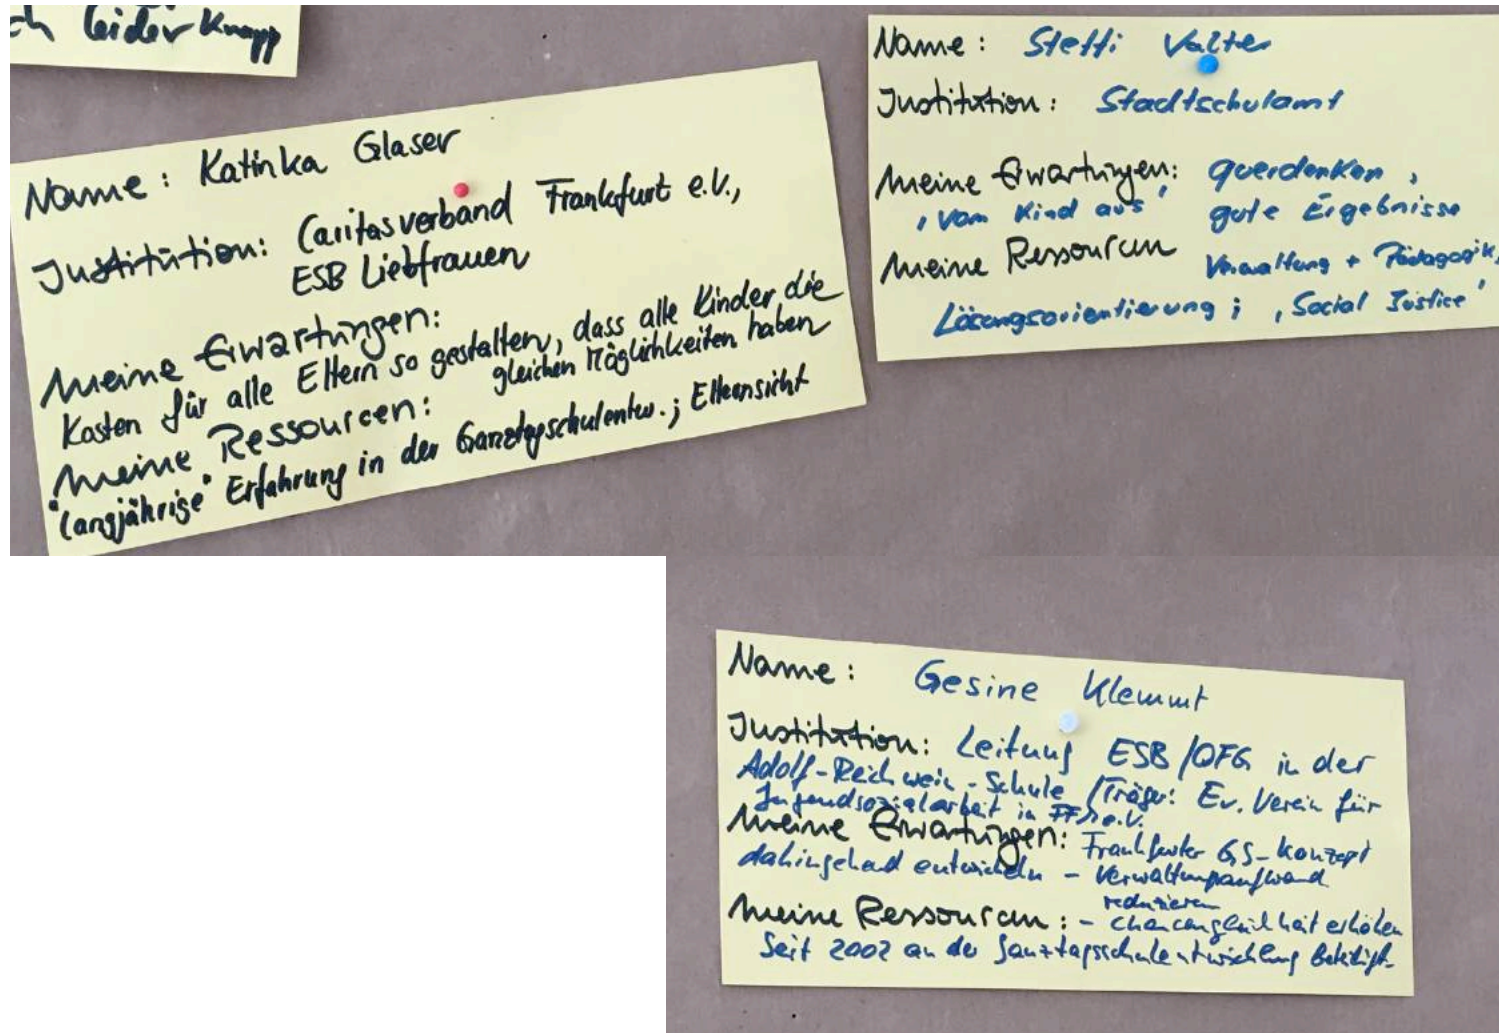 ch leider knapp
Name: Katinka Glaser
Institution: Caritasverband Frankfurt e.V.,
ESB Liebfrauen
Meine Erwartungen:
Kosten für alle Eltern so gestalten, dass alle Kinder die
gleichen Möglichkeiten haben
Meine Ressourcen:
"langjährige" Erfahrung in der Ganztagschulentw.; Elternsicht
Name: Steffi Valter
Institution: Stadtschulamt
Meine Erwartungen: querdenken,
'vom Kind aus' gute Ergebnisse
Meine Ressourcen Verwaltung + Pädagogik,
Lösungsorientierung; 'Social Justice'
Name: Gesine Klemmt
Institution: Leitung ESB/OFG in der
Adolf-Reichwein-Schule / Träger: Ev. Verein für
Jugendsozialarbeit in FFM e.V.
Meine Erwartungen: Frankfurter GS-Konzept
dahingehend entwickeln - Verwaltungsaufwand
reduzieren
Meine Ressourcen: - Chancengleichheit erhöhen
Seit 2002 an der Ganztagsschulentwicklung beteiligt.